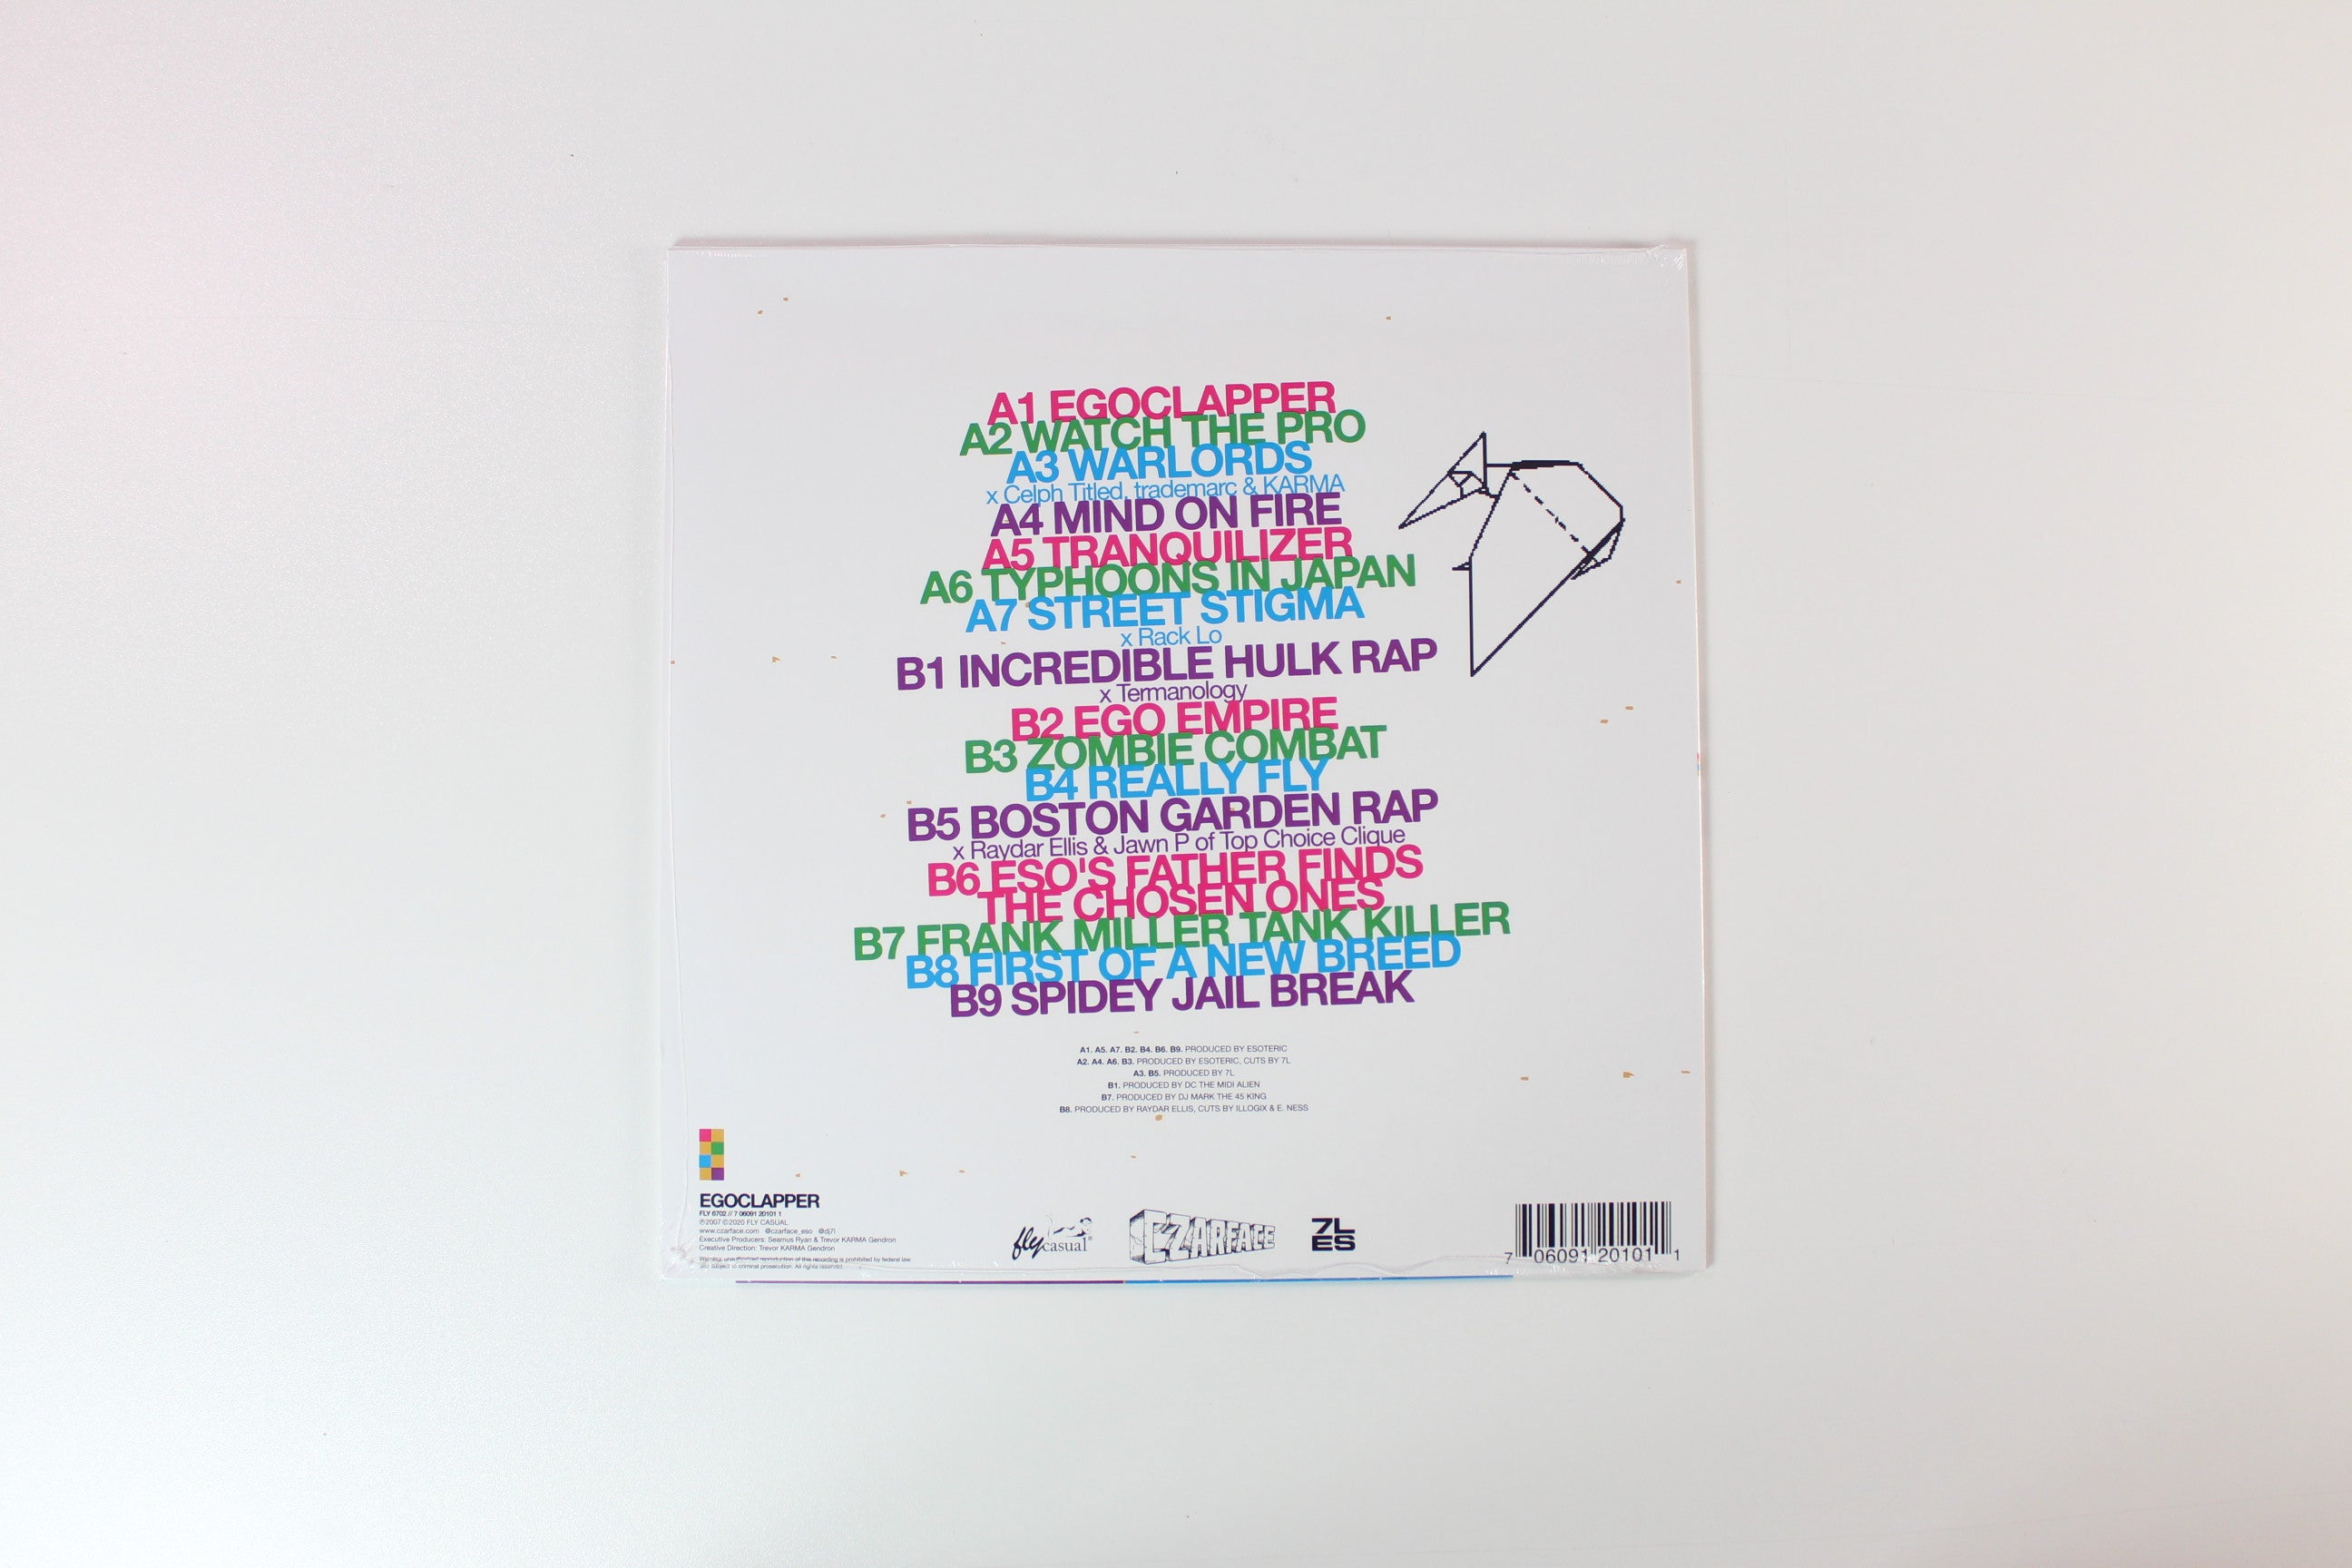 A1 EGOCLAPPER
A2 WATCH THE PRO
A3 WARLORDS
x Celph Titled, trademarc & KARMA
A4 MIND ON FIRE
A5 TRANQUILIZER
A6 TYPHOONS IN JAPAN
A7 STREET STIGMA
x Rack Lo
B1 INCREDIBLE HULK RAP
x Termanology
B2 EGO EMPIRE
B3 ZOMBIE COMBAT
B4 REALLY FLY
B5 BOSTON GARDEN RAP
x Raydar Ellis & Jawn P of Top Choice Clique
B6 ESO'S FATHER FINDS
THE CHOSEN ONES
B7 FRANK MILLER TANK KILLER
B8 FIRST OF A NEW BREED
B9 SPIDEY JAIL BREAK
A1. A5. A7. B2. B4. B6. B9. PRODUCED BY ESOTERIC
A2. A4. A6. B3. PRODUCED BY ESOTERIC, CUTS BY 7L
A3. B5. PRODUCED BY 7L
B1. PRODUCED BY DC THE MIDI ALIEN
B7. PRODUCED BY DJ MARK THE 45 KING
B8. PRODUCED BY RAYDAR ELLIS, CUTS BY ILLOGIX & E. NESS
EGOCLAPPER
FLY 6702 // 7 06091 20101 1
℗2007 ©2020 FLY CASUAL
www.czarface.com @czarface_eso @dj7l
Executive Producers: Seamus Ryan & Trevor KARMA Gendron
Creative Direction: Trevor KARMA Gendron
Warning: unauthorized reproduction of this recording is prohibited by federal law
and subject to criminal prosecution. All rights reserved.
flycasual®
CZARFACE
7L
ES
7 06091 20101 1